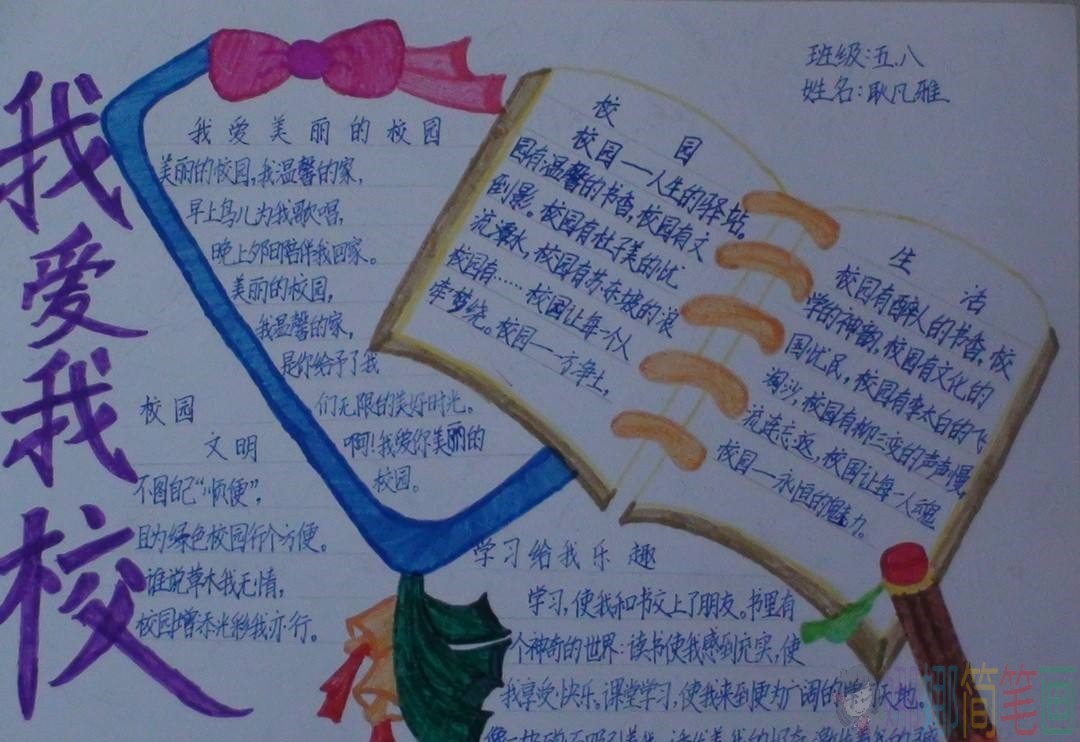 我爱我校
班级:五.八
姓名:耿凡雅
我爱美丽的校园
美丽的校园,我温馨的家,
早上鸟儿为我歌唱,
晚上夕阳陪伴我回家。
美丽的校园,
我温馨的家,
是你给予了我
们无限的美好时光。
啊!我爱你美丽的
校园。
校园
校园——人生的驿站。
园有温馨的书香,校园有文
倒影。校园有杜子美的忧
流潇水,校园有苏东坡的浪
校园有……校园让每一个人
牵梦绕。校园——一方净土,
生活
校园有醉人的书香,校
学的神韵,校园有文化的
国忧民,校园有李太白的飞
淘沙,校园有柳三变的声声慢,
流连忘返,校园让每一人魂
校园——永恒的魅力。
校园
文明
不图自己“顺便”,
且为绿色校园行个方便。
谁说草木我无情,
校园增添光彩我亦行。
学习给我乐趣
学习,使我和书交上了朋友。书里有
个神奇的世界:读书使我感到充实,使
我享受快乐。课堂学习,使我来到更为广阔的天地。
娜娜简笔画